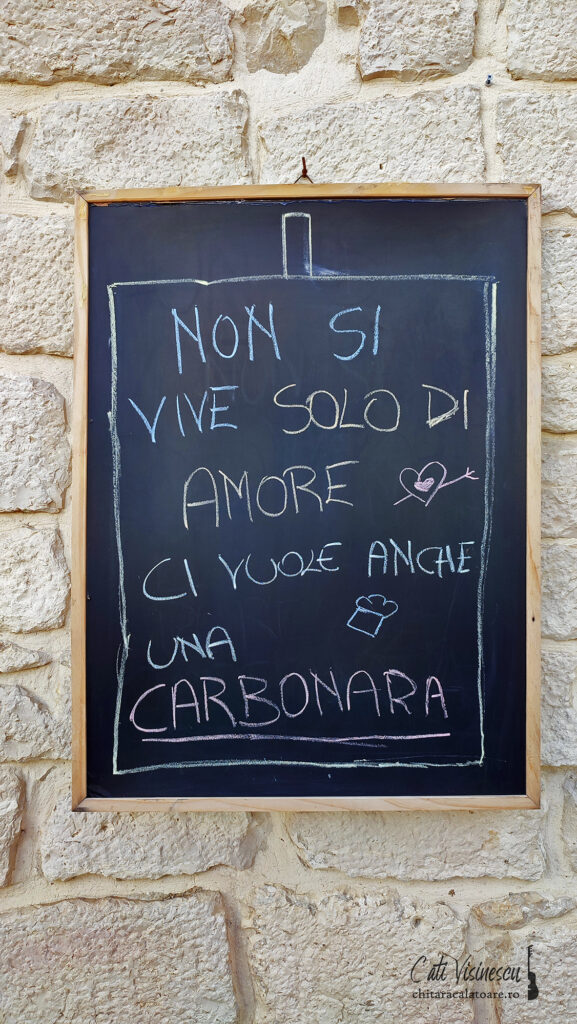 NON SI
VIVE SOLO DI
AMORE
CI VUOLE ANCHE
UNA
CARBONARA
Cati Visinescu
chitaracalatoare.ro